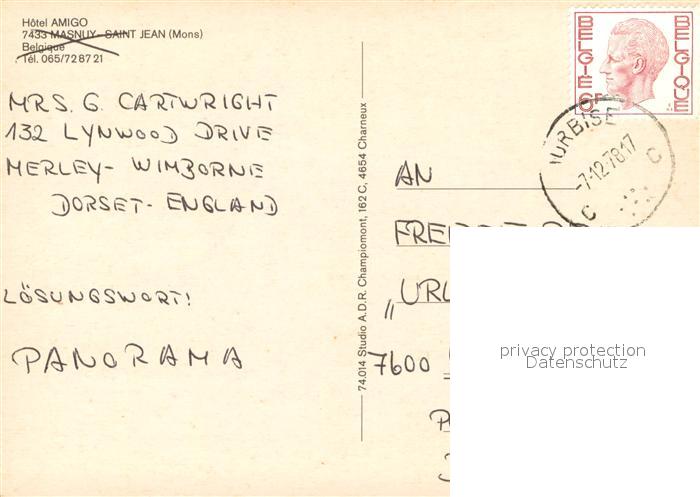 Hôtel AMIGO
7433 MASNUY-SAINT JEAN (Mons)
Belgique
Tél. 065/72 87 21
MRS. G. CARTWRIGHT
132 LYNWOOD DRIVE
MERLEY- WIMBORNE
DORSET- ENGLAND
LÖSUNGSWORT!
PANORAMA
74.014 Studio A.D.R. Championmont, 162 C, 4654 Charneux
BELGIË BELGIQUE
6F
JURBISE
-7-12-78.17
C C
AN
„URL
7600
privacy protection
Datenschutz